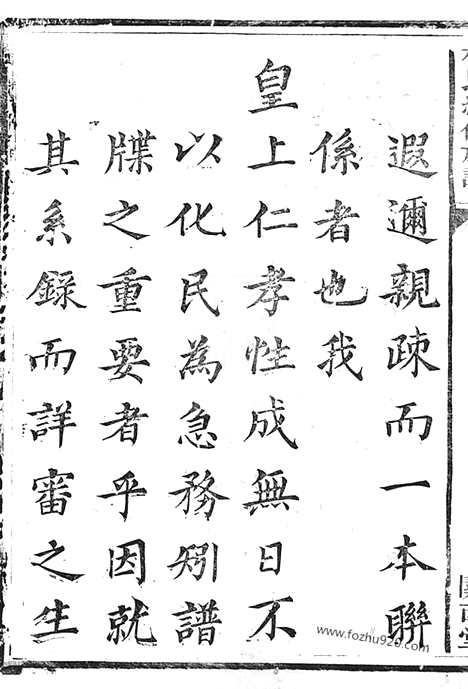 遐邇親疎而一本聯
係者也我
皇上仁孝性成無日不
以化民為急務矧譜
牒之重要者乎因就
其系録而詳審之生
www.fozhu920.com